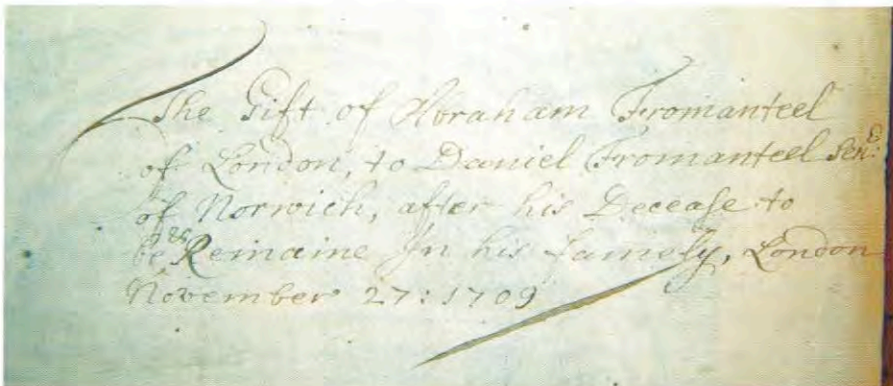 The Gift of Abraham Fromanteel
of London, to Daniel Fromanteel Senr:
of Norwich, after his Deceaſe to
Remaine In his famely, London
November 27: 1709